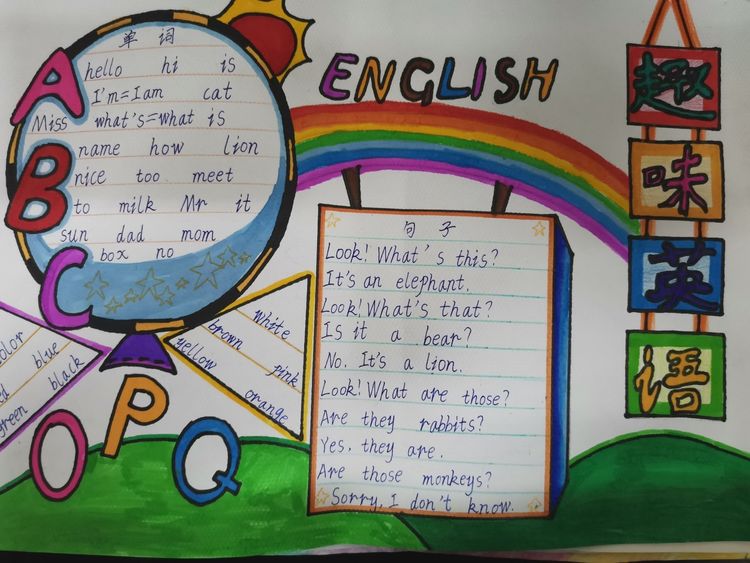 ENGLISH
趣
味
英
语
A
B
C
单 词
hello hi is
I'm=I am cat
Miss what's=what is
name how lion
nice too meet
to milk Mr it
sun dad mom
box no
blue
black
green
white
brown
yellow
pink
orange
O
P
Q
句 子
Look! What's this?
It's an elephant.
Look! What's that?
Is it a bear?
No. It's a lion.
Look! What are those?
Are they rabbits?
Yes, they are.
Are those monkeys?
Sorry, I don't know.